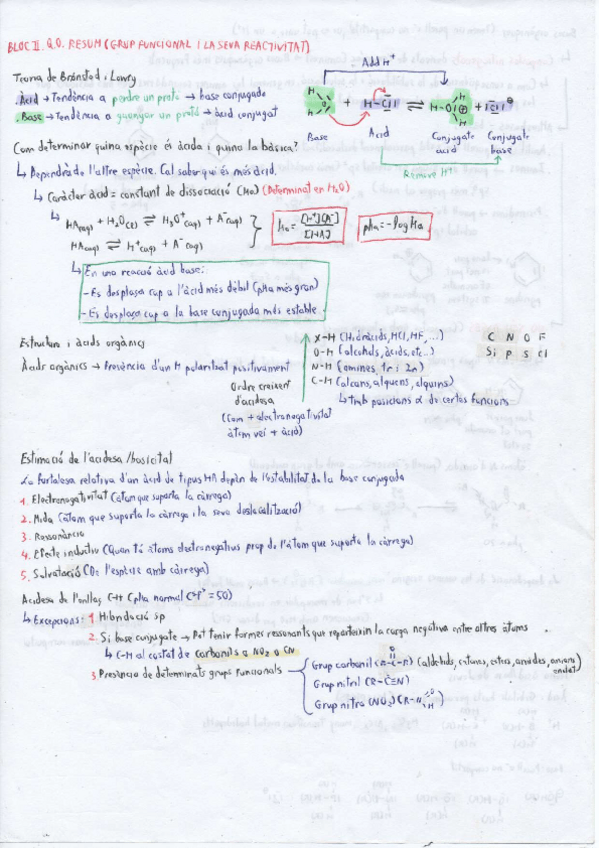 BLOC II. Q.O. RESUM (GRUP FUNCIONAL I LA SEVA REACTIVITAT)
Teoria de Brönsted i Lowry
Àcid → Tendència a perdre un protó → base conjugada
Base → Tendència a guanyar un protó → àcid conjugat
Add H+
H O H + H-Cl ⇌ H-O-H H ⊕ + Cl ⊖
Base Acid Conjugate acid Conjugate base
Remove H+
Com determinar quina espècie és àcida i quina la bàsica?
↳ Dependrà de l'altre espècie. Cal saber qui és més àcid.
↳ Caràcter àcid = constant de dissociació (Ka) (Determinat en H2O)
↳ HA(aq) + H2O(l) ⇌ H3O+(aq) + A-(aq)
HA(aq) ⇌ H+(aq) + A-(aq)
Ka = [H+][A-] / [HA]
pKa = -log Ka
↳ En una reacció àcid base:
- Es desplaça cap a l'àcid més dèbil (pKa més gran)
- Es desplaça cap a la base conjugada més estable
Estructura i àcids orgànics
Àcids orgànics → Presència d'un H polaritzat positivament
Ordre creixent
d'acidesa
(Com + electronegativitat
àtom veí + àcid)
X-H (Hidràcids, HCl, HF, ...)
O-H (alcohols, àcids, etc..)
N-H (amines, 1r i 2n)
C-H (alcans, alquens, alquins)
↳ trob posicions α de certes funcions
C N O F
Si P S Cl
Estimació de l'acidesa /basicitat
La fortalesa relativa d'un àcid de tipus HA depèn de l'estabilitat de la base conjugada
1. Electronegativitat (àtom que suporta la càrrega)
2. Mida (àtom que suporta la càrrega i la seva deslocalització)
3. Ressonància
4. Efecte inductiu (Quan té àtoms electronegatius prop de l'àtom que suporta la càrrega)
5. Solvatació (De l'espècie amb càrrega)
Acidesa de l'enllaç C-H (pKa normal = 50)
↳ Excepcions: 1 Hibridació sp
2. Si base conjugate → Pot tenir formes ressonants que reparteixin la carga negativa entre altres àtoms
↳ C-H al costat de carbonils o NO2 o CN
3 Presència de determinats grups funcionals
Grup carbonil (R-C-R) (aldehids, cetones, esters, amides,
Grup nitril (R-C≡N)
Grup nitro (NO2) (R-N